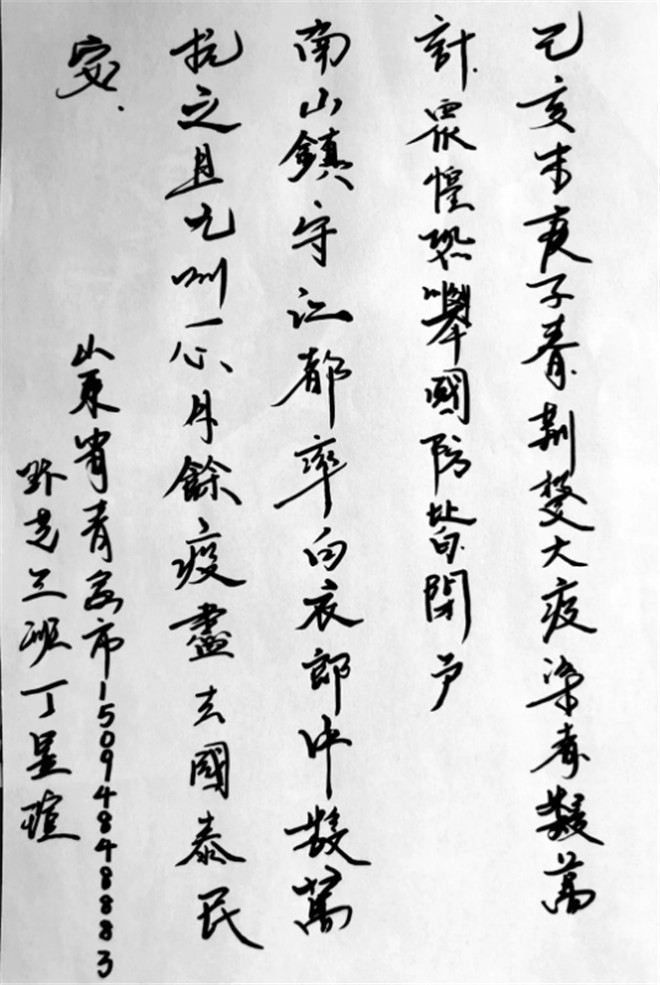 己亥末庚子春荆楚大疫染者數萬
計.眾惶恐舉國防皆閉户
南山鎮守江都率白衣郎中數萬
抗之且九州一心月餘疫盡去國泰民
安.
山東省青島市15094848883
硬笔三班丁星瑄